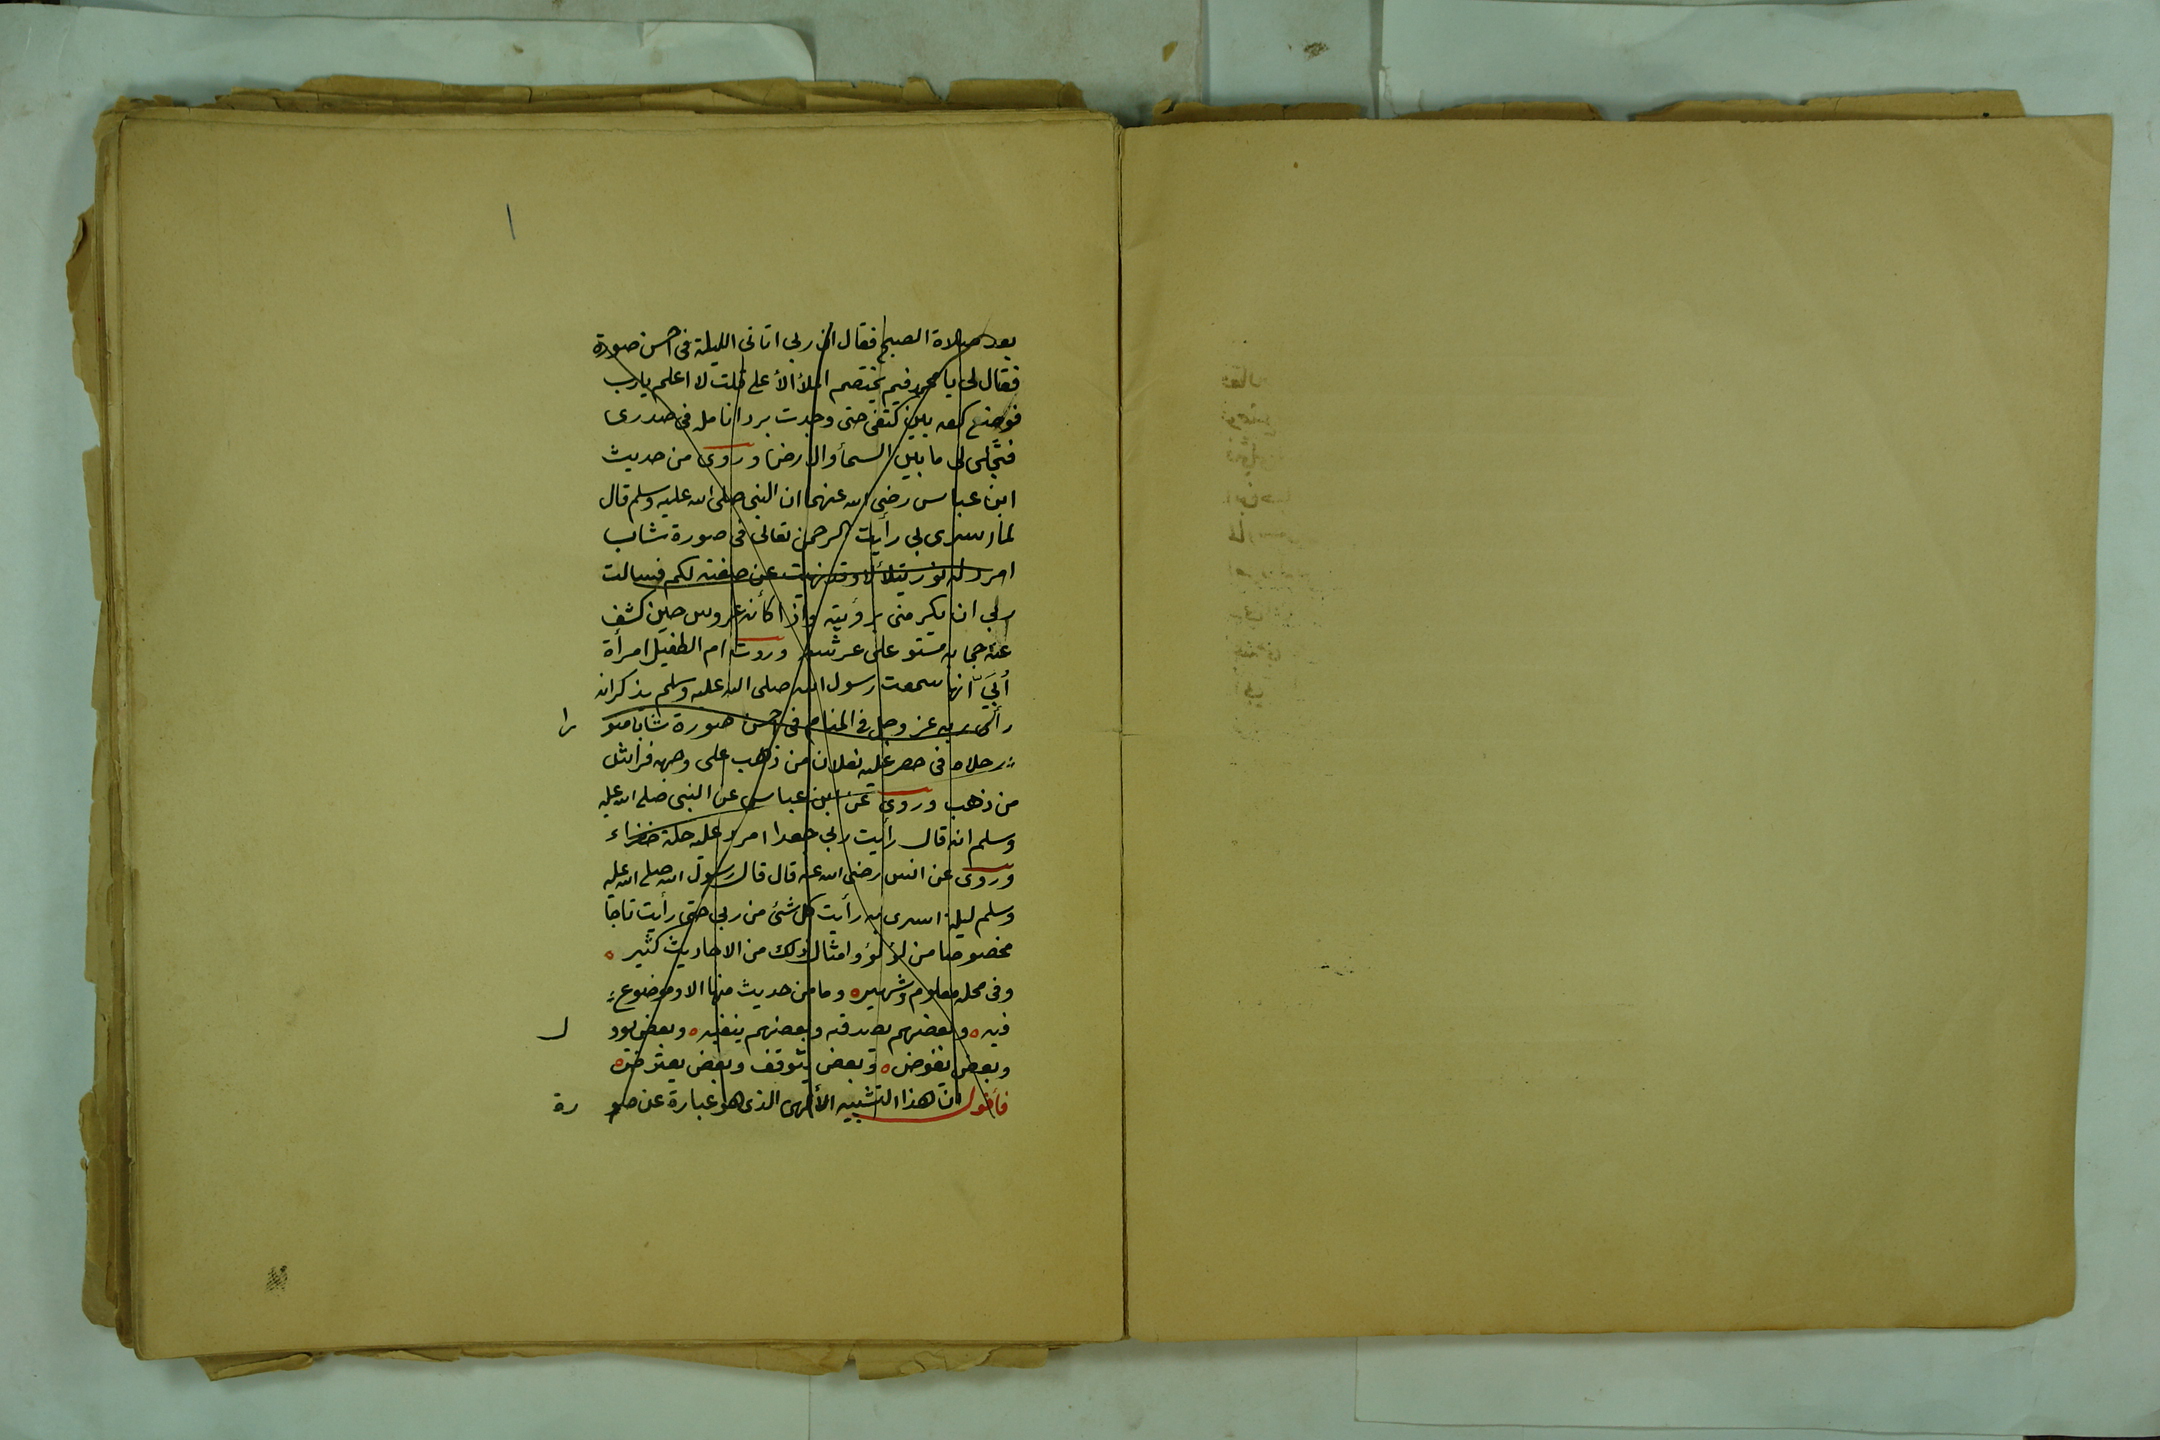 بعد صلاة الصبح فقال ان ربى اتانى الليلة فى احسن صورة
فقال لى يا محمد فيم يختصم الملأ الأعلى قلت لا اعلم يارب
فوضع كفه بين كتفى حتى وجدت برد انامله فى صدرى
فتجلى لى ما بين السمأ والارض وروى من حديث
ابن عباس رضى الله عنهما ان النبى صلى الله عليه وسلم قال
لما اسرى بى رأيت الرحمن تعالى فى صورة شاب
امرد له نور يتلألأ وقد نهيت عن صفته لكم فسالت
ربى ان يكرمنى برؤيته واذا كأنه عروس حين كشف
عنه حجابه مستو على عرشه وروت ام الطفيل امرأة
أبَيّ انها سمعت رسول الله صلى الله عليه وسلم يذكر انه
رأى ربه عز وجل فى المنام فى احسن صورة شابا مو را
رجلاه فى خصر عليه نعلان من ذهب على وجهه فراش
من ذهب وروى عن ابن عباس عن النبى صلى الله عليه
وسلم انه قال رأيت ربى جعدا امرد عليه حلة خضراء
وروى عن انس رضى الله عنه قال قال رسول الله صلى الله عليه
وسلم ليلة اسرى به رأيت كل شئ من ربى حتى رأيت تاجا
مخصوصا من لؤلؤ وامثال ذلك من الاحاديث كثير ه
وفى محله معلوم وشهير ه وما من حديث منها الا وموضوع
فيه ه وبعضهم يصدقه وبعضهم ينفيه ه وبعض يوو ل
وبعض يفوض ه وبعض يتوقف وبعض يعترض ه
فأقول ان هذا التشبيه الألهى الذى هو عبارة عن صو رة